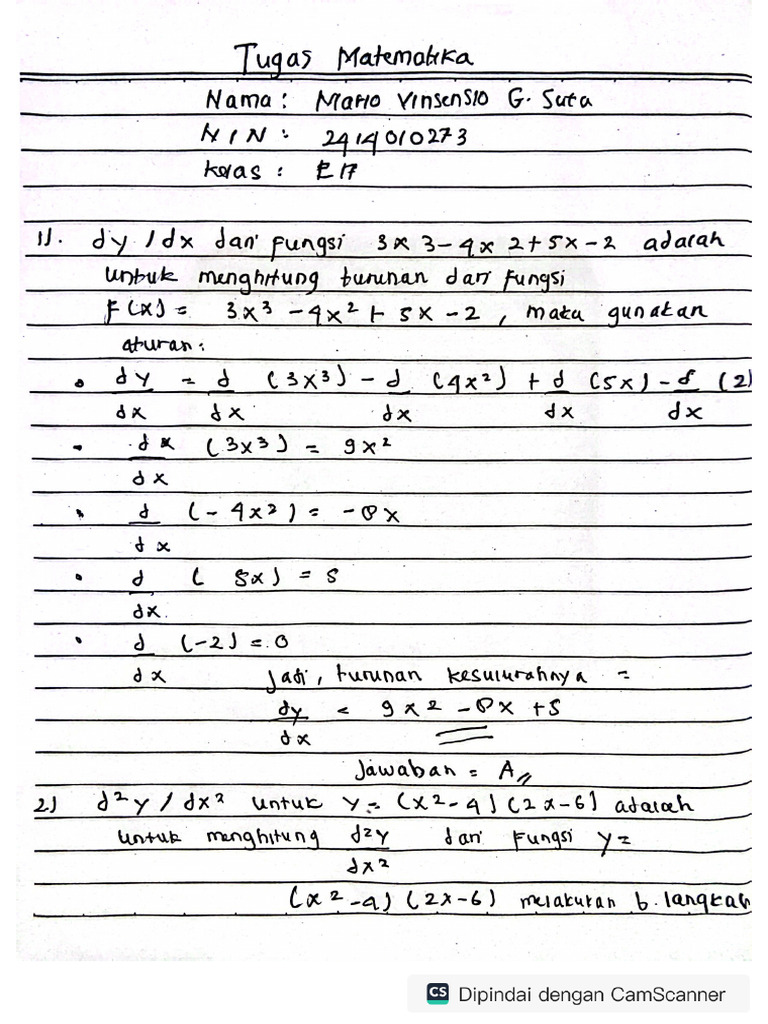 Tugas Matematika
Nama : Mario Vinsensio G. Suta
NIN : 2414010273
Kelas : E17
1). dy / dx dari fungsi 3x 3 - 4x 2 + 5x - 2 adalah
untuk menghitung turunan dari fungsi
F(x) = 3x³ - 4x² + 5x - 2 , maka gunakan
aturan :
• dy/dx = d/dx (3x³) - d/dx (4x²) + d/dx (5x) - d/dx (2)
• dx/dx (3x³) = 9x²
• d/dx (-4x²) = -8x
• d/dx (5x) = 5
• d/dx (-2) = 0
Jadi, turunan kesulurahnya =
dy/dx = 9x2 - 8x + 5
Jawaban = A
2) d²y / dx² untuk y = (x2-4) (2x-6) adalah
untuk menghitung d2y/dx2 dari fungsi y =
(x2-4) (2x-6) melakukan b. langkah
CS Dipindai dengan CamScanner